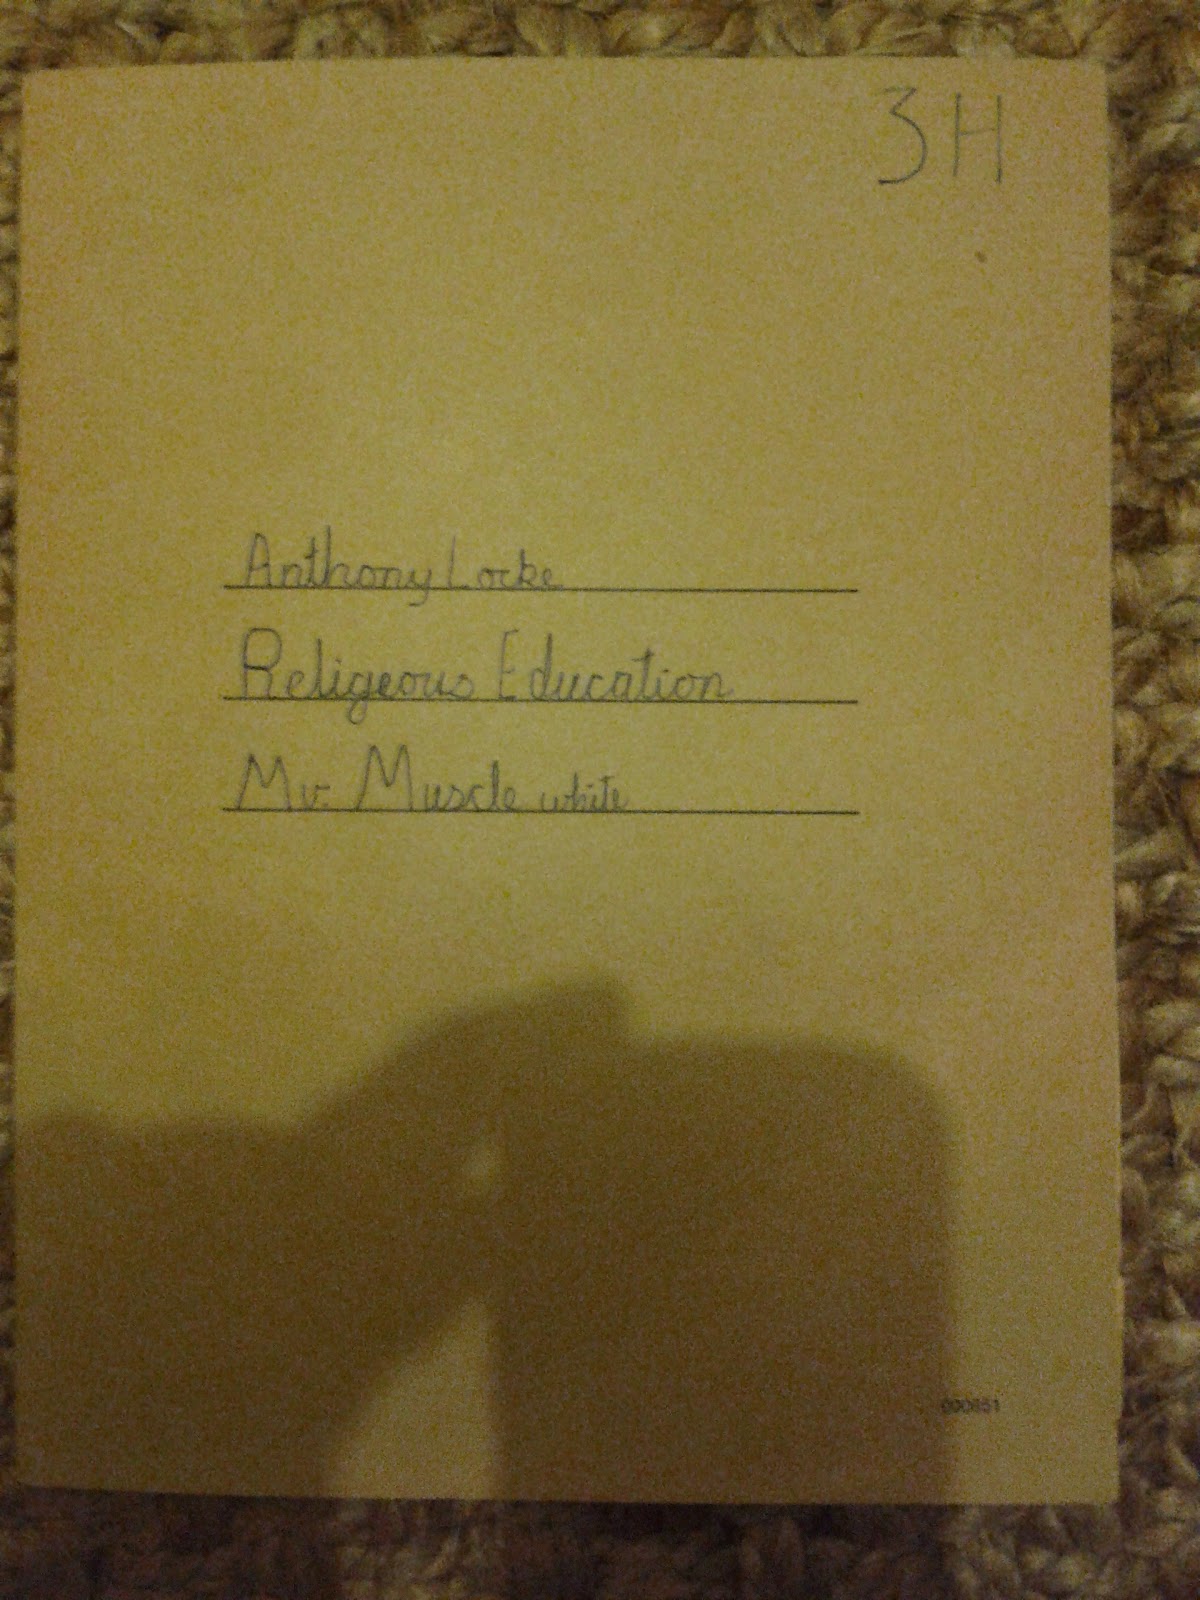 3H
Anthony Locke
Religeous Education
Mr. Muscle white
000851